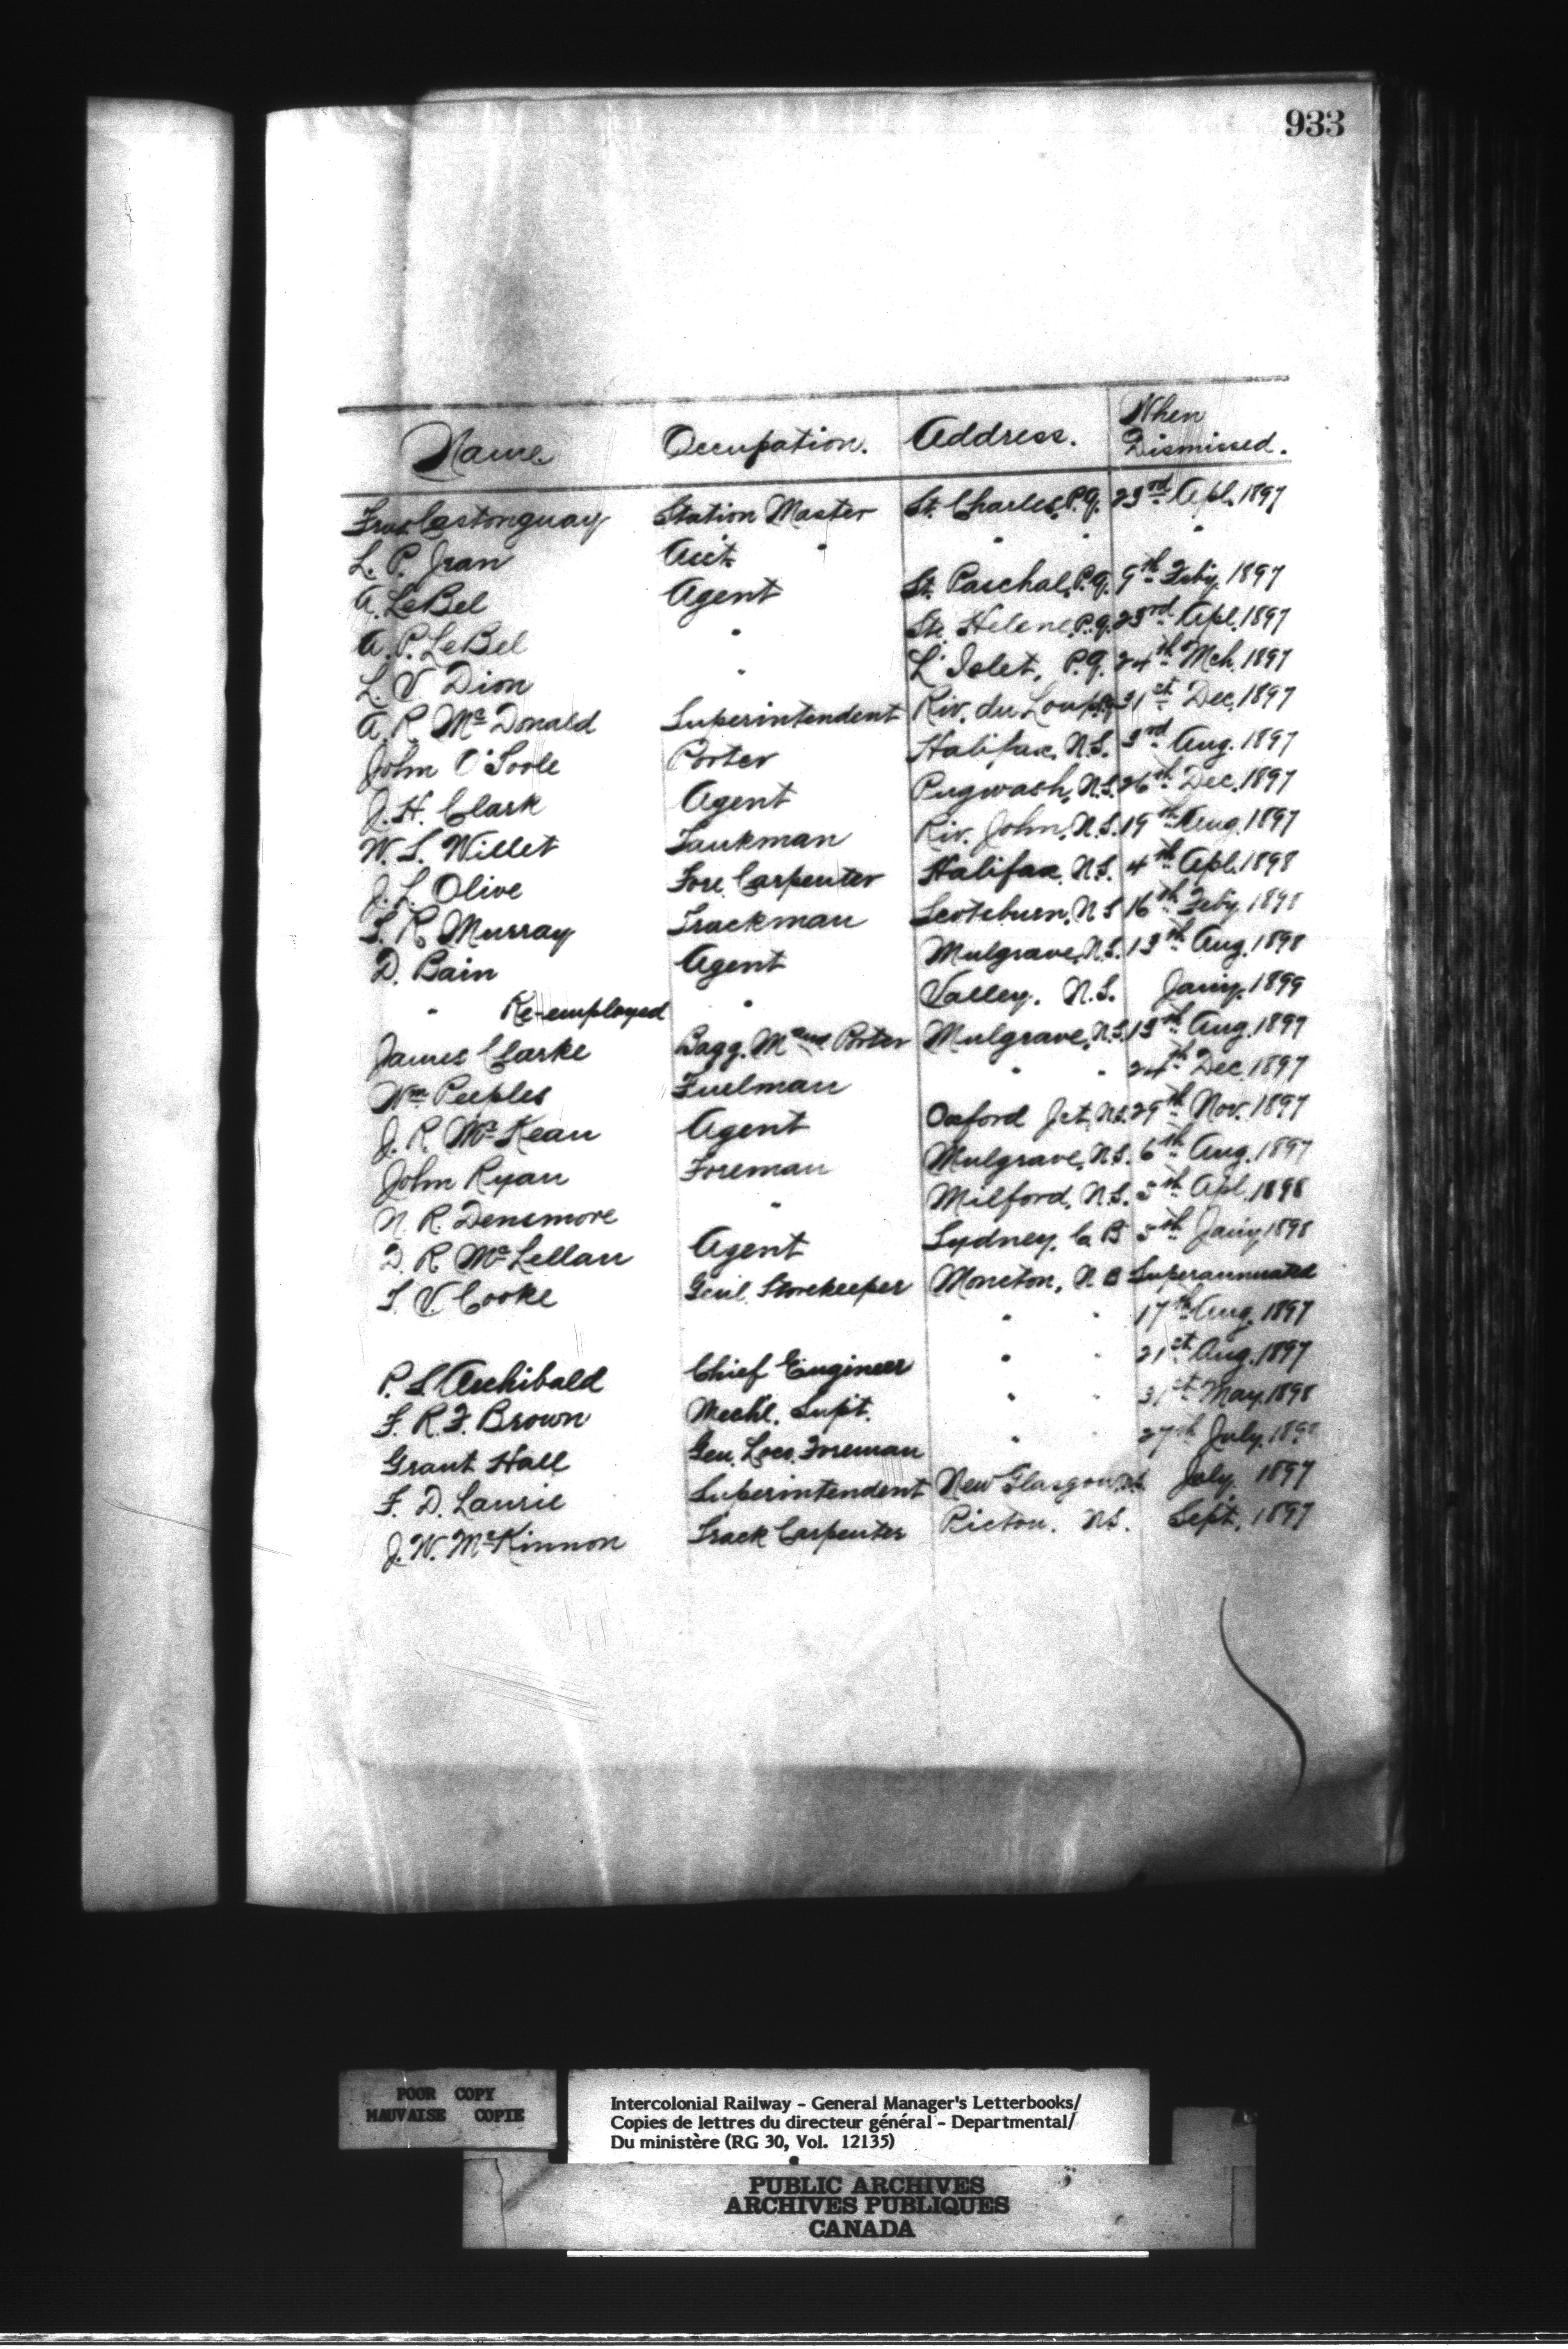 933
Name. Occupation. Address. When Dismissed.
Fras. Castonguay Station Master St. Charles, P.Q. 23rd Apl. 1897
L. P. Jean Asst. " " " "
A. LeBel Agent St. Paschal, P.Q. 9th Feby. 1897
A. P. LeBel " Ste. Helene, P.Q. 23rd Apl. 1897
L. V. Dion " L'Islet, P.Q. 24th Mch. 1897
A. R. McDonald Superintendent Riv. du Loup, P.Q. 31st Dec. 1897
John O'Toole Porter Halifax, N.S. 3rd Aug. 1897
J. H. Clark Agent Pugwash, N.S. 26th Dec. 1897
W. S. Willet Tankman Riv. John, N.S. 19th Aug. 1897
J. L. Olive Fore. Carpenter Halifax, N.S. 4th Apl. 1898
S. R. Murray Trackman Scotsburn, N.S. 16th Feby. 1898
D. Bain Agent Mulgrave, N.S. 13th Aug. 1898
" Re-employed " Valley, N.S. Jany. 1899
James Clarke Bagg. Mas & Porter Mulgrave, N.S. 13th Aug. 1897
Wm. Peeples Fuelman " " 24th Dec. 1897
J. R. McKean Agent Oxford Jct. N.S. 29th Nov. 1897
John Ryan Foreman Mulgrave, N.S. 6th Aug. 1897
N. R. Densmore " Milford, N.S. 5th Apl. 1898
D. R. McLellan Agent Sydney, C.B. 5th Jany. 1898
T. V. Cooke Genl. Storekeeper Moncton, N.B. Superannuated
" " 17th Aug. 1897
P. S. Archibald Chief Engineer " " 21st Aug. 1897
F. R. F. Brown Mechl. Supt. " " 31st May. 1898
Grant Hall Gen. Loco. Foreman " " 27th July.
F. D. Laurie Superintendent New Glasgow, N.S. July, 1897
J. W. McKinnon Track Carpenter Pictou, N.S. Sept. 1897
POOR COPY
MAUVAISE COPIE
Intercolonial Railway - General Manager's Letterbooks/
Copies de lettres du directeur général - Departmental/
Du ministère (RG 30, Vol. 12135)
PUBLIC ARCHIVES
ARCHIVES PUBLIQUES
CANADA